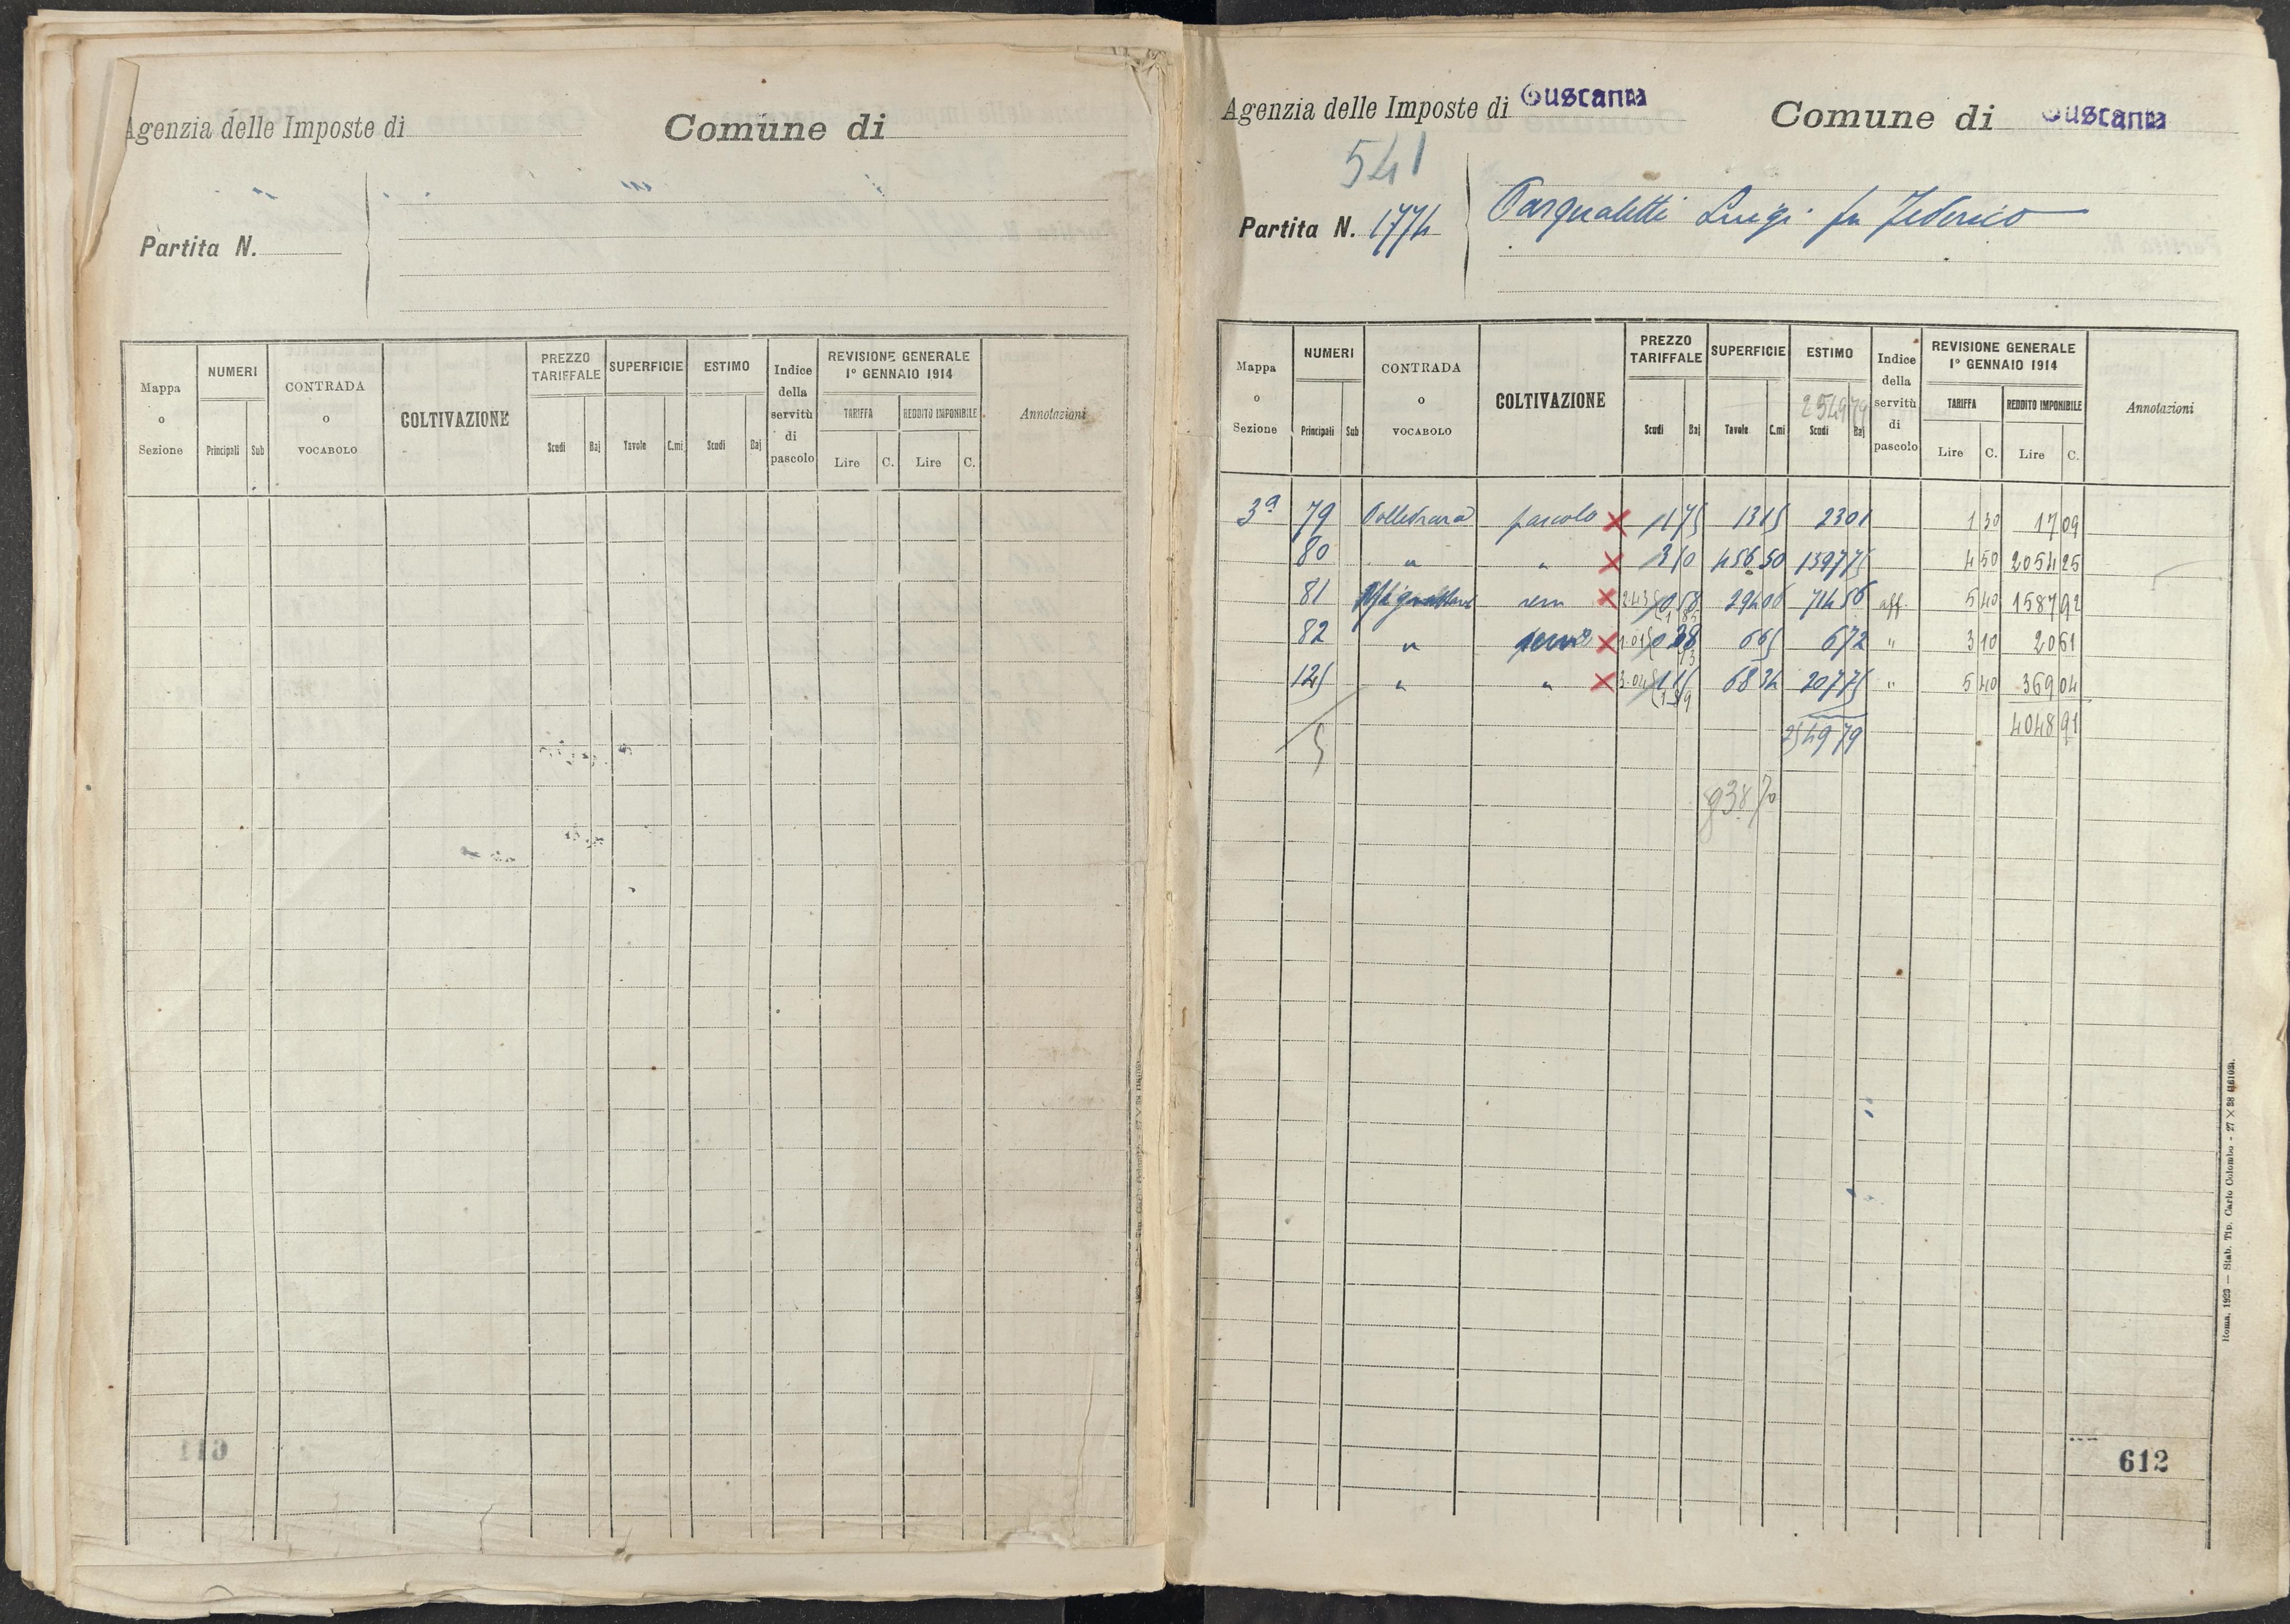 Agenzia delle Imposte di
Comune di
Partita N.
Mappa o Sezione
NUMERI
Principali Sub
CONTRADA o VOCABOLO
COLTIVAZIONE
PREZZO TARIFFALE
Scudi Baj
SUPERFICIE
Tavole C.mi
ESTIMO
Scudi Baj
Indice della servitù di pascolo
REVISIONE GENERALE
1° GENNAIO 1914
TARIFFA REDDITO IMPONIBILE
Lire C. Lire C.
Annotazioni
Agenzia delle Imposte di Tuscania
Comune di Tuscania
541
Partita N. 1774
Pasqualetti Luigi fu Federico
Mappa o Sezione
NUMERI
Principali Sub
CONTRADA o VOCABOLO
COLTIVAZIONE
PREZZO TARIFFALE
Scudi Baj
SUPERFICIE
Tavole C.mi
ESTIMO
2549 79
Scudi Baj
Indice della servitù di pascolo
REVISIONE GENERALE
1° GENNAIO 1914
TARIFFA REDDITO IMPONIBILE
Lire C. Lire C.
Annotazioni
3ª 79 Polledrara pascolo X 1 75 13 15 23 01 1 30 17 09
80 " " X 3 50 456 50 1597 75 4 50 2054 25
81 sem X 2.43 0 58 294 06 714 56 aff. 5 40 1587 92
82 " X 1.01 0 28 6 65 6 72 " 3 10 20 61
125 " " X 3.04 1 15 68 34 207 75 " 5 40 369 04
5 2549 79 4048 91
838.70
612
Roma, 1923 — Stab. Tip. Carlo Colombo - 27 × 38